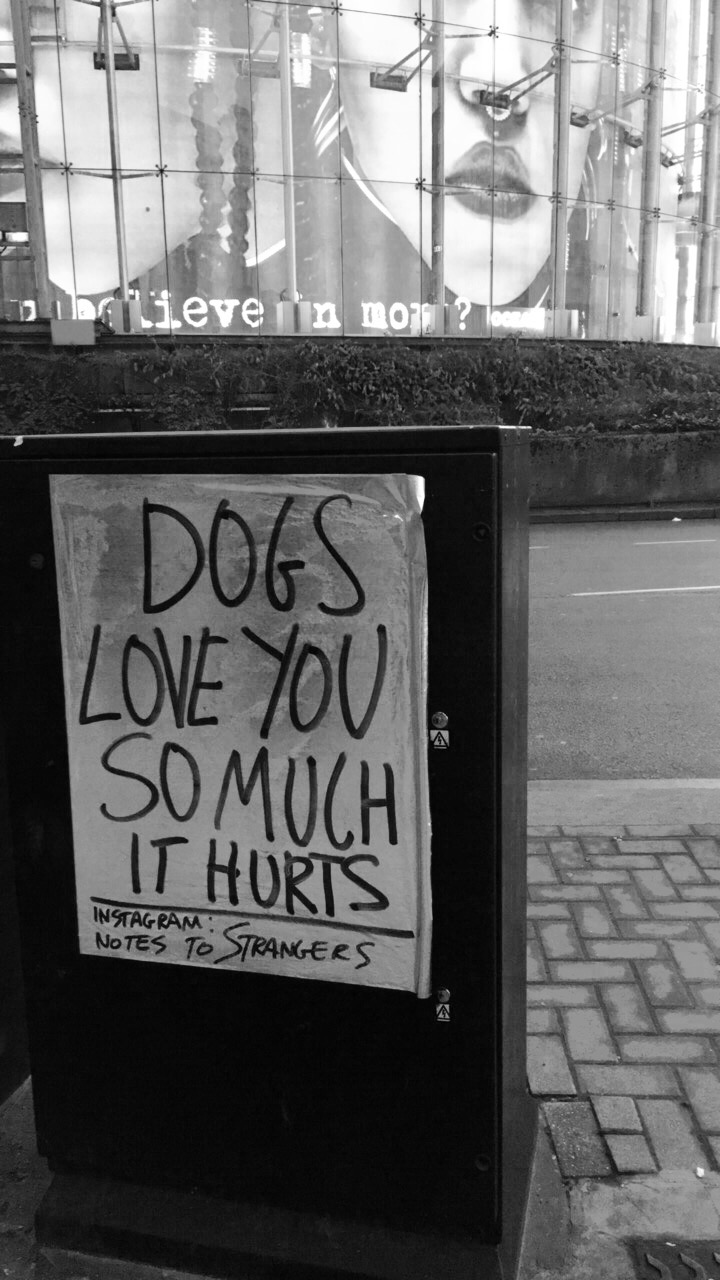 believe in mor ?
DOGS
LOVE YOU
SO MUCH
IT HURTS
INSTAGRAM:
NOTES TO STRANGERS